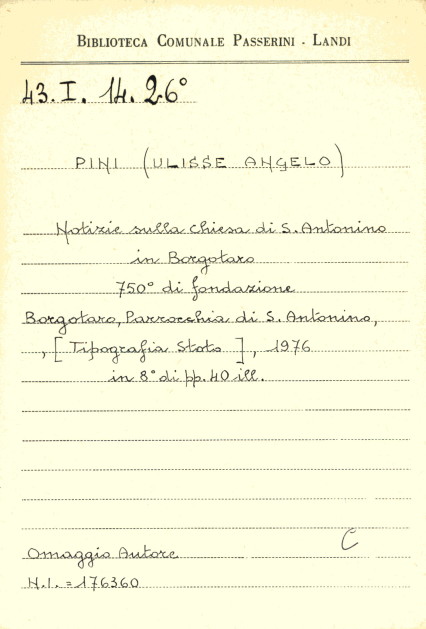 BIBLIOTECA COMUNALE PASSERINI - LANDI
43. I. 14. 26°
PINI (ULISSE ANGELO)
Notizie sulla Chiesa di S. Antonino
in Borgotaro
750° di fondazione
Borgotaro, Parrocchia di S. Antonino,
, [Tipografia Stoto], 1976
in 8° di pp. 40 ill.
C
Omaggio Autore
N.I. = 176360